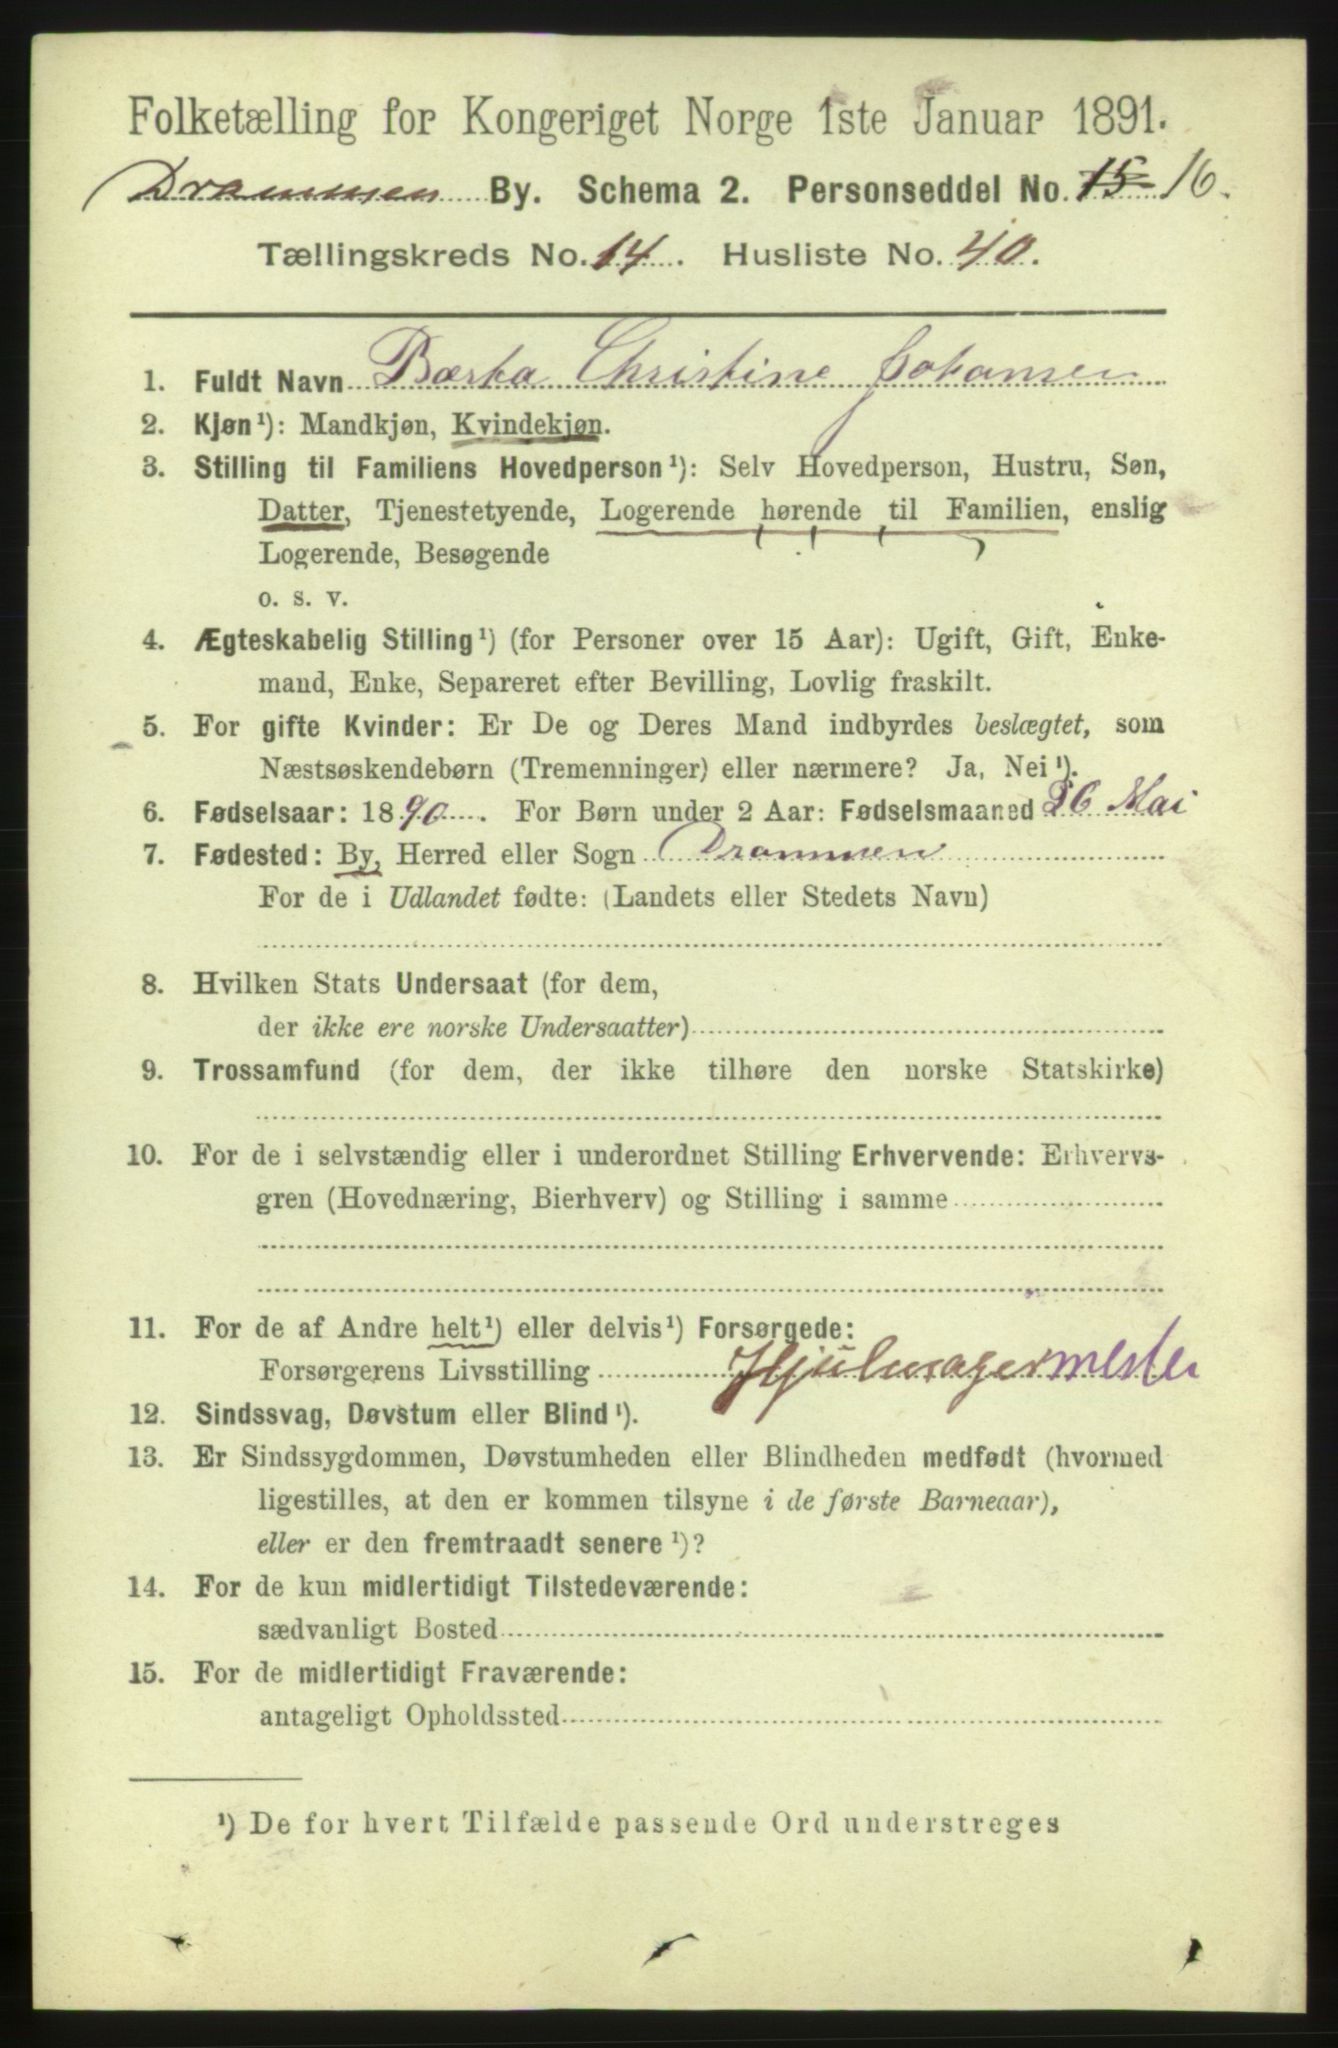 Folketælling for Kongeriget Norge 1ste Januar 1891.
Drammen By. Schema 2. Personseddel No. 15 16.
Tællingskreds No. 14. Husliste No. 40.
1. Fuldt Navn Bærta Christine Johansen
2. Kjøn¹): Mandkjøn, Kvindekjøn.
3. Stilling til Familiens Hovedperson¹): Selv Hovedperson, Hustru, Søn,
Datter, Tjenestetyende, Logerende hørende til Familien, enslig
Logerende, Besøgende
o. s. v.
4. Ægteskabelig Stilling¹) (for Personer over 15 Aar): Ugift, Gift, Enke-
mand, Enke, Separeret efter Bevilling, Lovlig fraskilt.
5. For gifte Kvinder: Er De og Deres Mand indbyrdes beslægtet, som
Næstsøskendebørn (Tremenninger) eller nærmere? Ja, Nei¹).
6. Fødselsaar: 1890. For Børn under 2 Aar: Fødselsmaaned 26 Mai
7. Fødested: By, Herred eller Sogn Drammen
For de i Udlandet fødte: (Landets eller Stedets Navn)
8. Hvilken Stats Undersaat (for dem,
der ikke ere norske Undersaatter)
9. Trossamfund (for dem, der ikke tilhøre den norske Statskirke)
10. For de i selvstændig eller i underordnet Stilling Erhvervende: Erhvervs-
gren (Hovednæring, Bierhverv) og Stilling i samme
11. For de af Andre helt¹) eller delvis¹) Forsørgede:
Forsørgerens Livsstilling Hjulmagermester
12. Sindssvag, Døvstum eller Blind¹).
13. Er Sindssygdommen, Døvstumheden eller Blindheden medfødt (hvormed
ligestilles, at den er kommen tilsyne i de første Barneaar),
eller er den fremtraadt senere¹)?
14. For de kun midlertidigt Tilstedeværende:
sædvanligt Bosted
15. For de midlertidigt Fraværende:
antageligt Opholdssted
¹) De for hvert Tilfælde passende Ord understreges